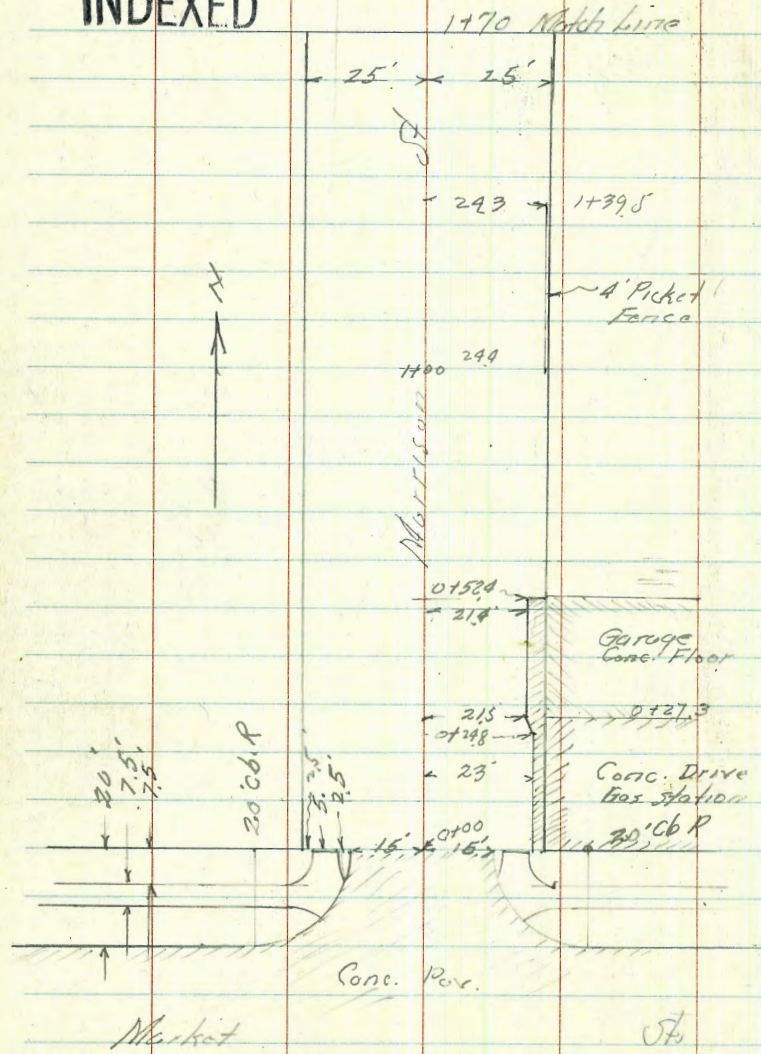 INDEXED
1+70 Match Line
25' 25'
St
24.3 1+39.5
N
4' Picket
Fence
1+00 24.4
Morrison
0+52.4
21.4
Garage
Conc. Floor
21.5 0+27.3
0+24.8
23 Conc. Drive
Gas Station
20' 7.5' 7.5' 20' Cb. R 2.5' 5' 2.5'
0+00 20' Cb R
15' 15'
Conc. Pav.
Market St.